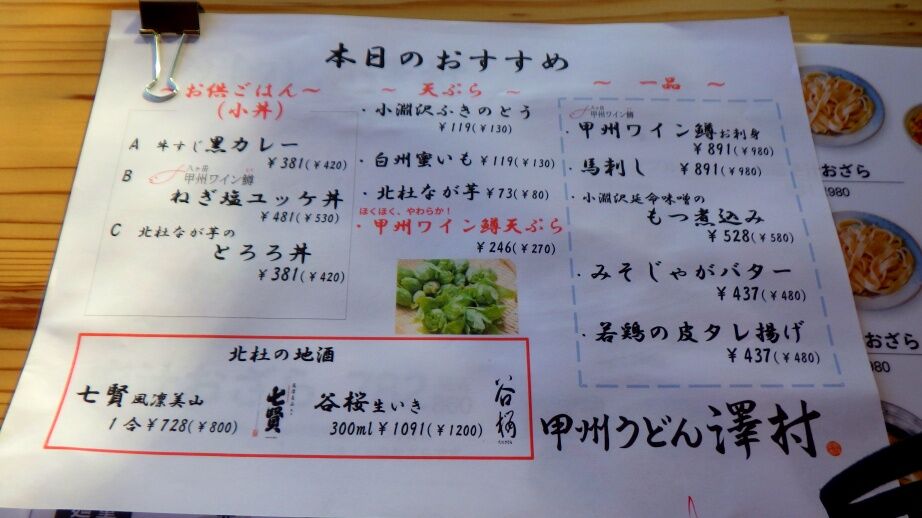 本日のおすすめ
～お供ごはん～
(小丼)
A 牛すじ黒カレー
￥381(￥420)
B 八ヶ岳
甲州ワイン鱒
ねぎ塩ユッケ丼
￥481(￥530)
C 北杜なが芋の
とろろ丼
￥381(￥420)
～ 天ぷら ～
・小淵沢ふきのとう
￥119(￥130)
・白州蜜いも￥119(￥130)
・北杜なが芋￥73(￥80)
ほくほく、やわらか！
・甲州ワイン鱒天ぷら
￥246(￥270)
～ 一品 ～
八ヶ岳
甲州ワイン鱒
・甲州ワイン鱒お刺身
￥891(￥980)
・馬刺し ￥891(￥980)
・小淵沢延命味噌の
もつ煮込み
￥528(￥580)
・みそじゃがバター
￥437(￥480)
・若鶏の皮タレ揚げ
￥437(￥480)
北杜の地酒
七賢風凛美山
1合￥728(￥800)
七賢
谷桜生いき
300ml￥1091(￥1200)
谷桜
甲州うどん澤村
おざら
980
おざら
980